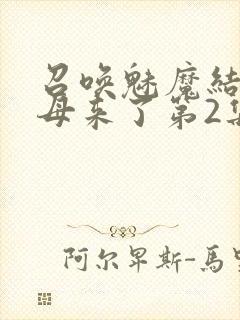 召唤魅魔结
母来了第2集
阿尔卑斯-馬